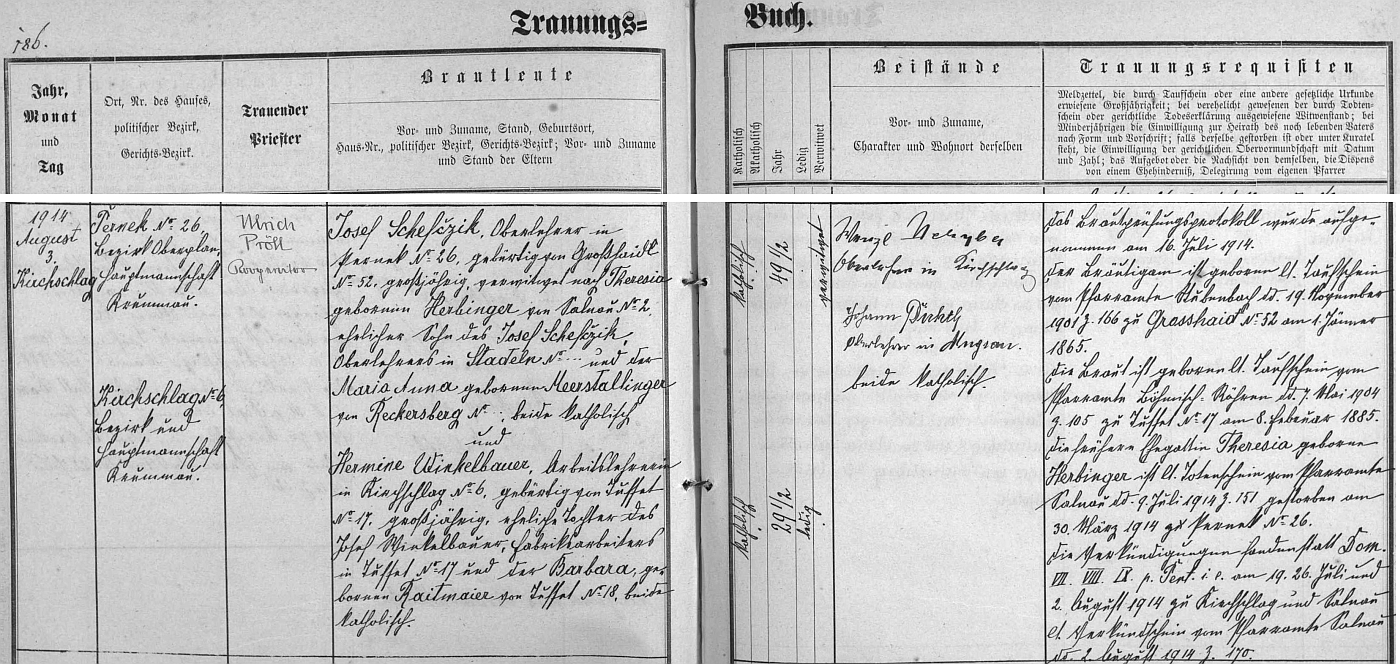 186.
Trauungs=
Buch.
Jahr,
Monat
und
Tag
Ort, Nr. des Hauses,
politischer Bezirk,
Gerichts-Bezirk.
Trauender
Priester
Brautleute
Vor- und Zuname, Stand, Geburtsort,
Haus-Nr., politischer Bezirk, Gerichts-Bezirk; Vor- und Zuname
und Stand der Eltern
Katholisch
Akatholisch
Jahr
Ledig
Verwitwet
Beistände
Vor- und Zuname,
Charakter und Wohnort derselben
Trauungsrequisiten
Meldzettel, die durch Taufschein oder eine andere gesetzliche Urkunde
erwiesene Großjährigkeit; bei verehelicht gewesenen der durch Todten-
schein oder gerichtliche Todeserklärung ausgewiesene Witwenstand; bei
Minderjährigen die Einwilligung zur Heirath des noch lebenden Vaters
nach Form und Vorschrift; falls derselbe gestorben ist oder unter Kuratel
steht, die Einwilligung der gerichtlichen Obervormundschaft mit Datum
und Zahl; das Aufgebot oder die Nachsicht von demselben, die Dispens
von einem Ehehinderniß, Delegirung vom eigenen Pfarrer
1914
August
3.
Kirchschlag
Pernek No 26,
Bezirk Oberplan,
Hauptmannschaft
Krummau.
Kirchschlag No 6,
Bezirk und
Hauptmannschaft
Krummau.
Ulrich
Pröll
Kooperator
Josef Schefczik, Oberlehrer in
Pernek No 26, gebürtig von Großhaidl
No 52, großjährig, verwitwet nach Theresia
gebornen Herbinger von Salnau No 2,
ehelicher Sohn des Josef Schefczik,
Oberlehrers in Stadeln No ... und der
Maria Anna gebornen Meerstallinger
von Reckersberg No .., beide katholisch
und
Hermine Winkelbauer, Arbeitslehrerin
in Kirchschlag No 6, gebürtig von Tusset
No 17, großjährig, eheliche Tochter des
Josef Winkelbauer, Fabriksarbeiters
in Tusset No 17 und der Barbara, ge-
bornen Raitmaier von Tusset No 18, beide
katholisch.
katholisch
49 1/2
verwitwet
katholisch
29 1/2
ledig
Wenzl
Oberlehrer in Kirchschlag
Johann
Oberlehrer in
beide katholisch.
Das Brautprüfungsprotokoll wurde aufge-
nommen am 16. Juli 1914.
Der Bräutigam ist geboren lt. Taufschein
vom Pfarramte Stubenbach dd. 19. November
1901 Z. 166 zu Grosshaid No 52 am 1. Jänner
1865.
Die Braut ist geboren lt. Taufschein vom
Pfarramte Böhmisch-Röhren dd. 7. Mai 1904
Z. 105 zu Tusset No 17 am 8. Februar 1885.
Die frühere Ehegattin Theresia geborne
Herbinger ist lt. Totenschein vom Pfarramte
Salnau dd. 9. Juli 1914 Z. 151 gestorben am
30. März 1914 zu Pernek No 26.
Die Verkündigungen fanden statt Dom.
VII. VIII. IX. p. Pent. i. e. am 19. 26. Juli und
2. August 1914 zu Kirchschlag und Salnau
lt. Verkündschein vom Pfarramte Salnau
dd. 2. August 1914 Z. 170.